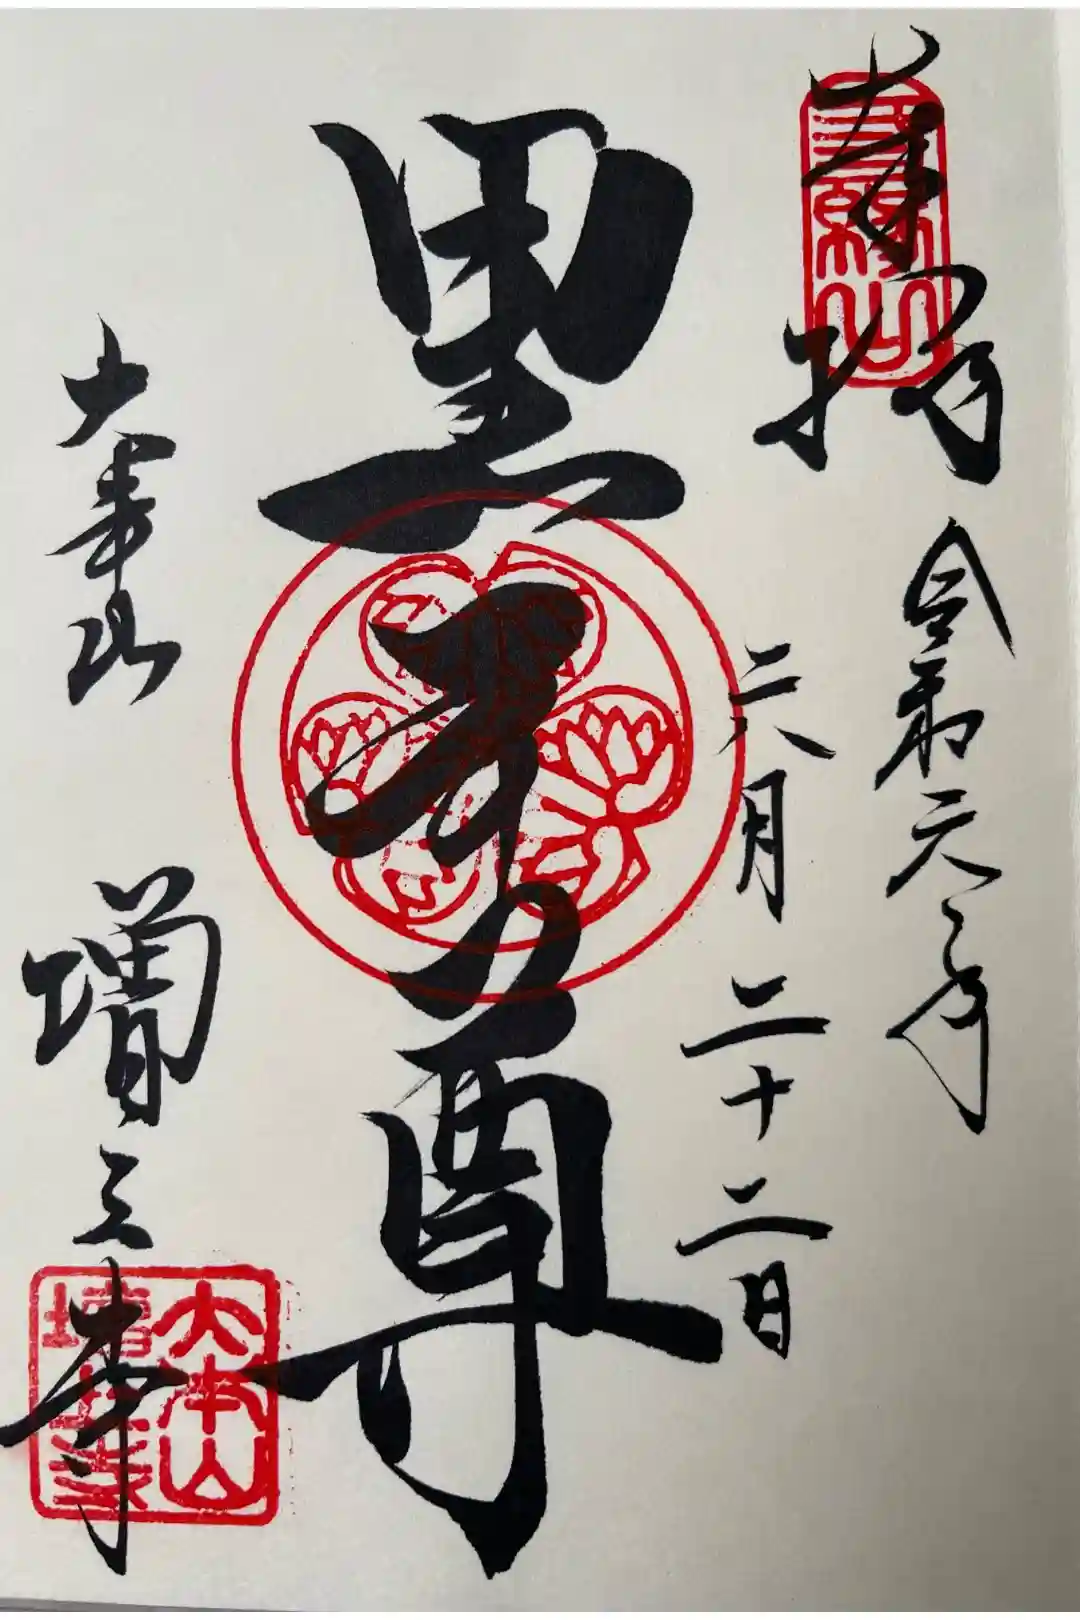 奉拝 令和元年
六月二十二日
三縁山
黒本尊
大本山 増上寺
大本山
増上寺